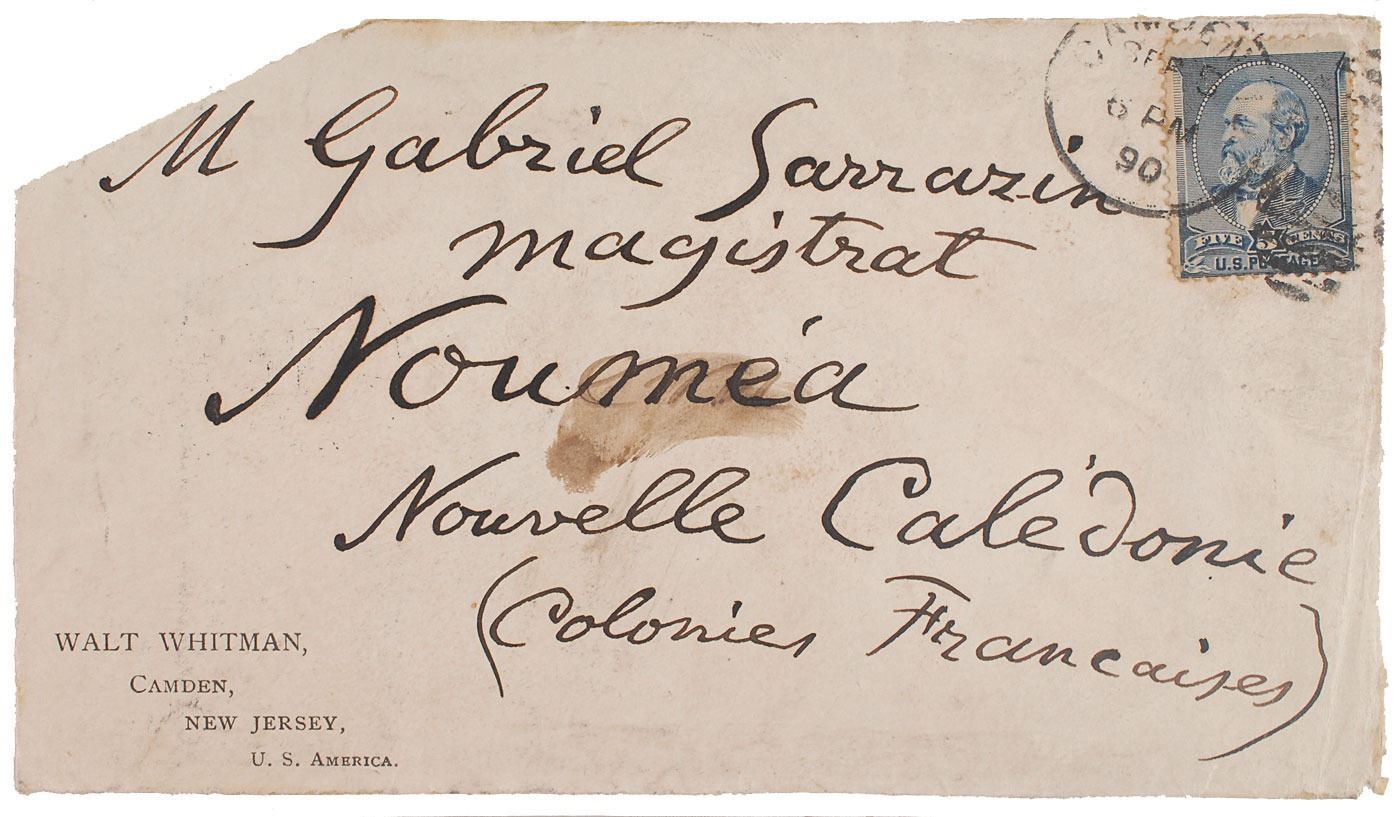 CAMDEN
SEP 5
6 PM
90
FIVE 5 CENTS
U.S. POSTAGE
M Gabriel Sarrazin
magistrat
Nouméa
Nouvelle Calédonie
(Colonies Francaises)
WALT WHITMAN,
CAMDEN,
NEW JERSEY,
U. S. AMERICA.